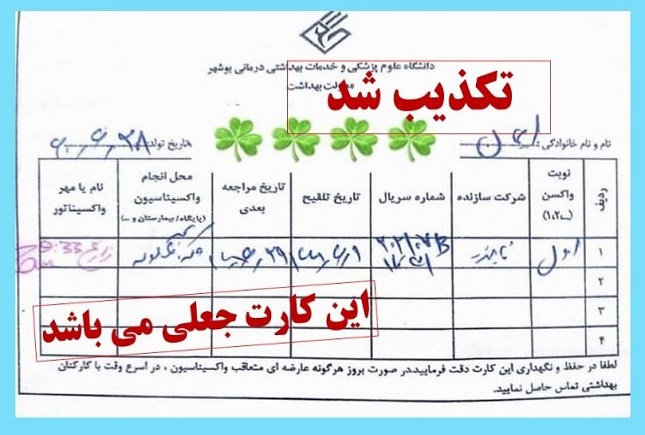 دانشگاه علوم پزشکی و خدمات بهداشتی درمانی بوشهر
معاونت بهداشت
تکذیب شد
نام و نام خانوادگی :
تاریخ تولد:
ردیف
نوبت واکسن (۱،۲...)
شرکت سازنده
شماره سریال
تاریخ تلقیح
تاریخ مراجعه بعدی
محل انجام واکسیناسیون (پایگاه/ بیمارستان و ...)
نام یا مهر واکسیناتور
۱ اول
۲
۳
۴
این کارت جعلی می باشد
لطفا در حفظ و نگهداری این کارت دقت فرمایید.در صورت بروز هرگونه عارضه ای متعاقب واکسیناسیون ، در اسرع وقت با کارکنان
بهداشتی تماس حاصل نمایید.